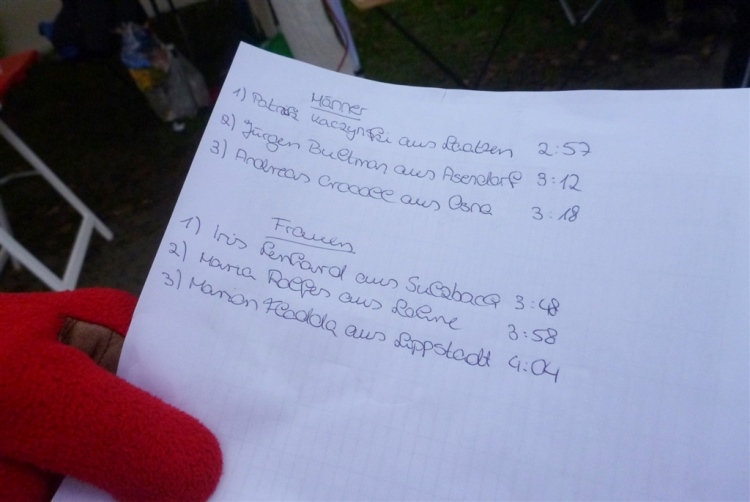 Männer
1) Patrik Kaczynski aus Laatzen 2:57
2) Jürgen Bullman aus Asendorf 3:12
3) Andreas aus Osna 3:18
Frauen
1) Iris Lenhard aus Sulzbach 3:48
2) Maria Rolfes aus Lohne 3:58
3) Marion Fladda aus Lippstadt 4:04